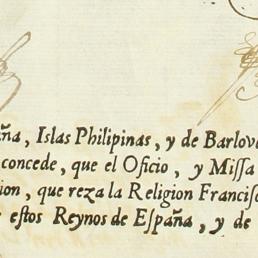 ña, Islas Philipinas, y de Barlov
concede, que el Oficio, y Missa
ion, que reza la Religion Francisc
estos Reynos de España, y de